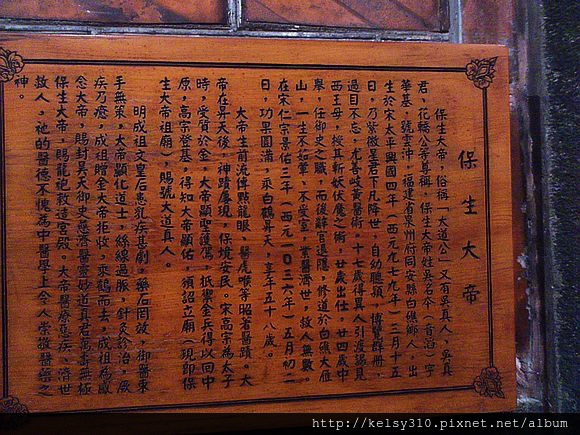 保生大帝
保生大帝，俗稱「大道公」又有吳真人、吳真
君、花轎公等尊稱，保生大帝姓吳名夲（音滔）字
華基，號雲沖，福建省泉州府同安縣白礁鄉人，出
生於宋太平興國四年（西元九七九年）三月十五
日，乃紫微星君下凡降世，自幼聰穎，博覽群冊，
過目不忘，尤善岐黃醫術，十七歲得異人引渡謁見
西王母，授其斬妖伏魔之術，廿歲出仕，廿四歲中
舉，任御史之職，而後辭官退隱，修道於白礁大雁
山，一生不茹葷、不受室，業醫濟世，救人無數。
在宋仁宗景佑三年（西元一○三六年）五月初二
日，功果圓滿，乘白鶴昇天，享年五十八歲。
大帝生前流傳點龍眼、醫虎喉等昭著醫蹟。大
帝在昇天後，神蹟屢現，保境安民。宋高宗為太子
時，受質於金，大帝顯聖護駕，抵禦金兵得以回中
原，高宗登基。得知大帝顯佑，頒詔立廟（現即保
生大帝祖廟），賜號大道真人。
明成祖文皇后患乳疾甚劇，藥石罔效，御醫束
手無策。大帝顯化道士，絲線過脈，針灸診治，厥
疾乃癒，成祖贈金大帝拒收，乘鶴而去，成祖為感
念大帝，賜封昊天御史慈濟醫靈妙道真君萬壽無極
保生大帝，賜龍袍敕造宮殿。大帝醫療惡疾、濟世
救人，祂的醫德不愧為中醫學上令人崇敬醫藥之
神。
http://kelsy310.pixnet.net/album